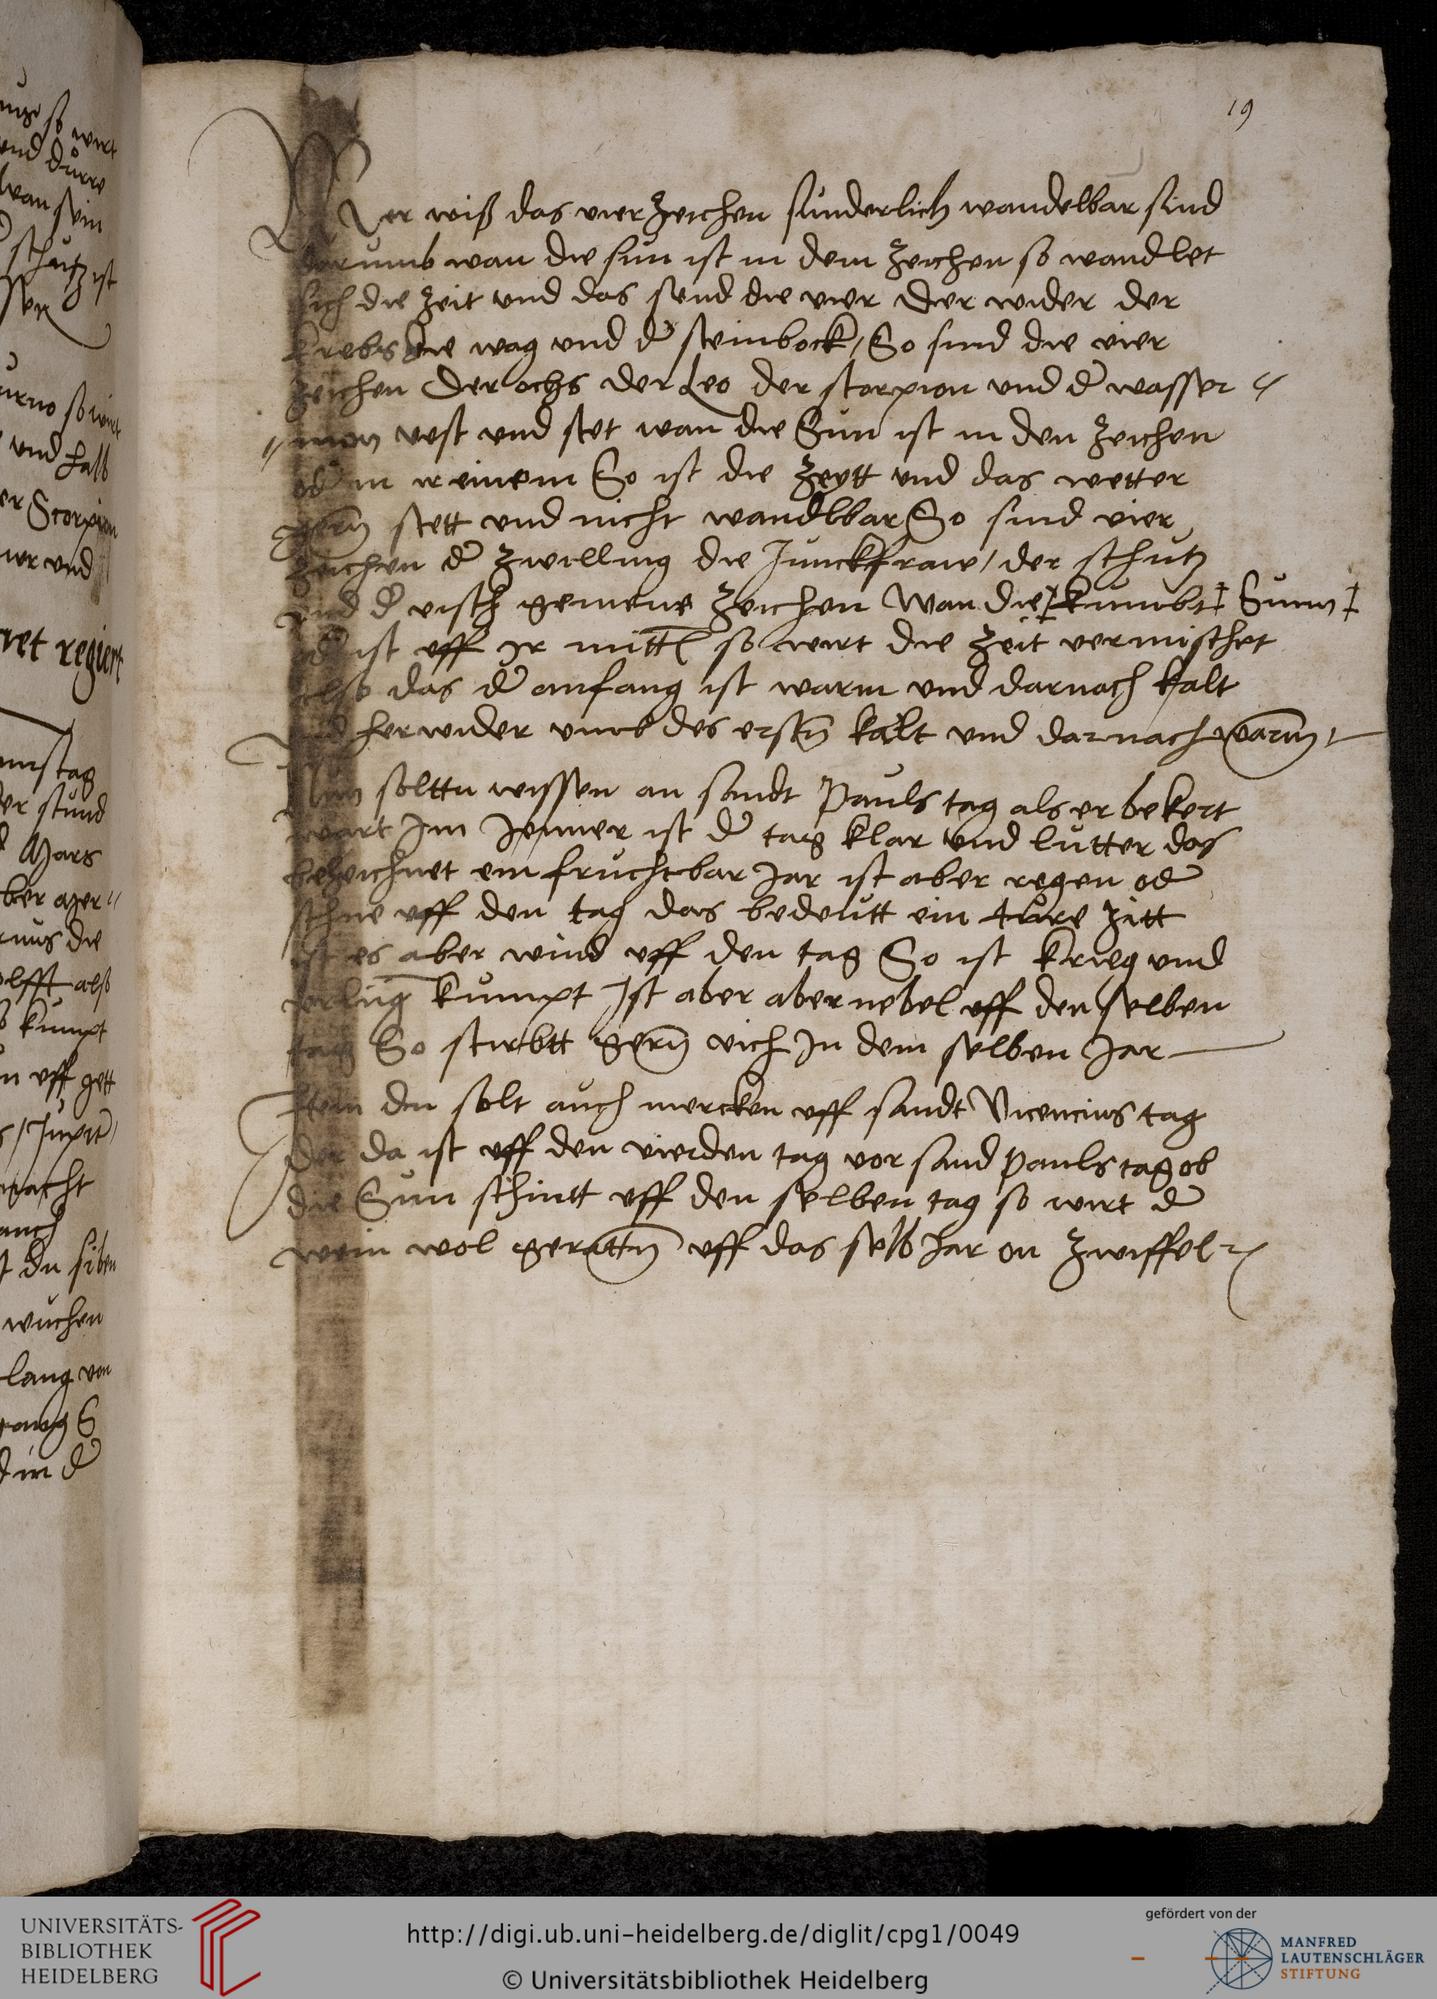 19
Wer wiß das vier zeichen sunderlich wandelbar sind
darumb wan die sun ist in dem zeichen so wandlet
sich die zeit vnd das send die vier Der wider der
krebs die wag vnd d' steinbock / So sind die vier
zeichen Der ochs der Leo der scorpion vnd d' wasser =
= man vest vnd stet wan die Sun ist in den zeichen
od' in ir einem So ist die zeytt vnd das wetter
gern stett vnd nicht wandlbar So sind vier
zeichen d' zwilling die Junckfraw / der schutz
vnd d' visch gemene zeichen Wan die ‡ kumbt ‡ Sunn ‡
od' ist vff ir mittl so wirt die zeit vermischet
also das d' anfang ist warm vnd darnach kalt
vnd herwider vmb des ersten kalt vnd darnach warm
Nun solttu wissen an sandt Pauls tag als er bekert
wart Im Jenner ist d' tag klar vnd lutter das
bezeichnet ein fruchtbar Jar ist aber regen od'
schne vff den tag das bedeutt ein ture zitt
ist es aber wind vff den tag So ist krieg vnd
vrlug kumpt Ist aber aber nebel vff den selben
tag So stirbtt gern vich In dem selben Jar
Item du solt auch mercken vff sandt Vicencius tag
der da ist vff den vierden tag vor sand Pauls tag ob
die Sun schintt vff den selben tag so wirt d'
wein wol gerattn vff das selb Jar on zwiffel
vnd
ist
Mars
kumpt
wuchen
lang von
UNIVERSITÄTS-
BIBLIOTHEK
HEIDELBERG
http://digi.ub.uni-heidelberg.de/diglit/cpg1/0049
© Universitätsbibliothek Heidelberg
gefördert von der
MANFRED
LAUTENSCHLÄGER
STIFTUNG